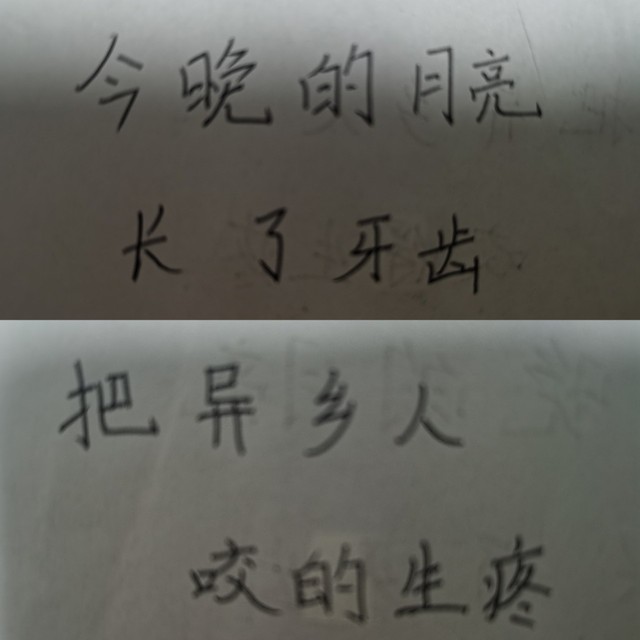 今晚的月亮
长了牙齿
把异乡人
咬的生疼